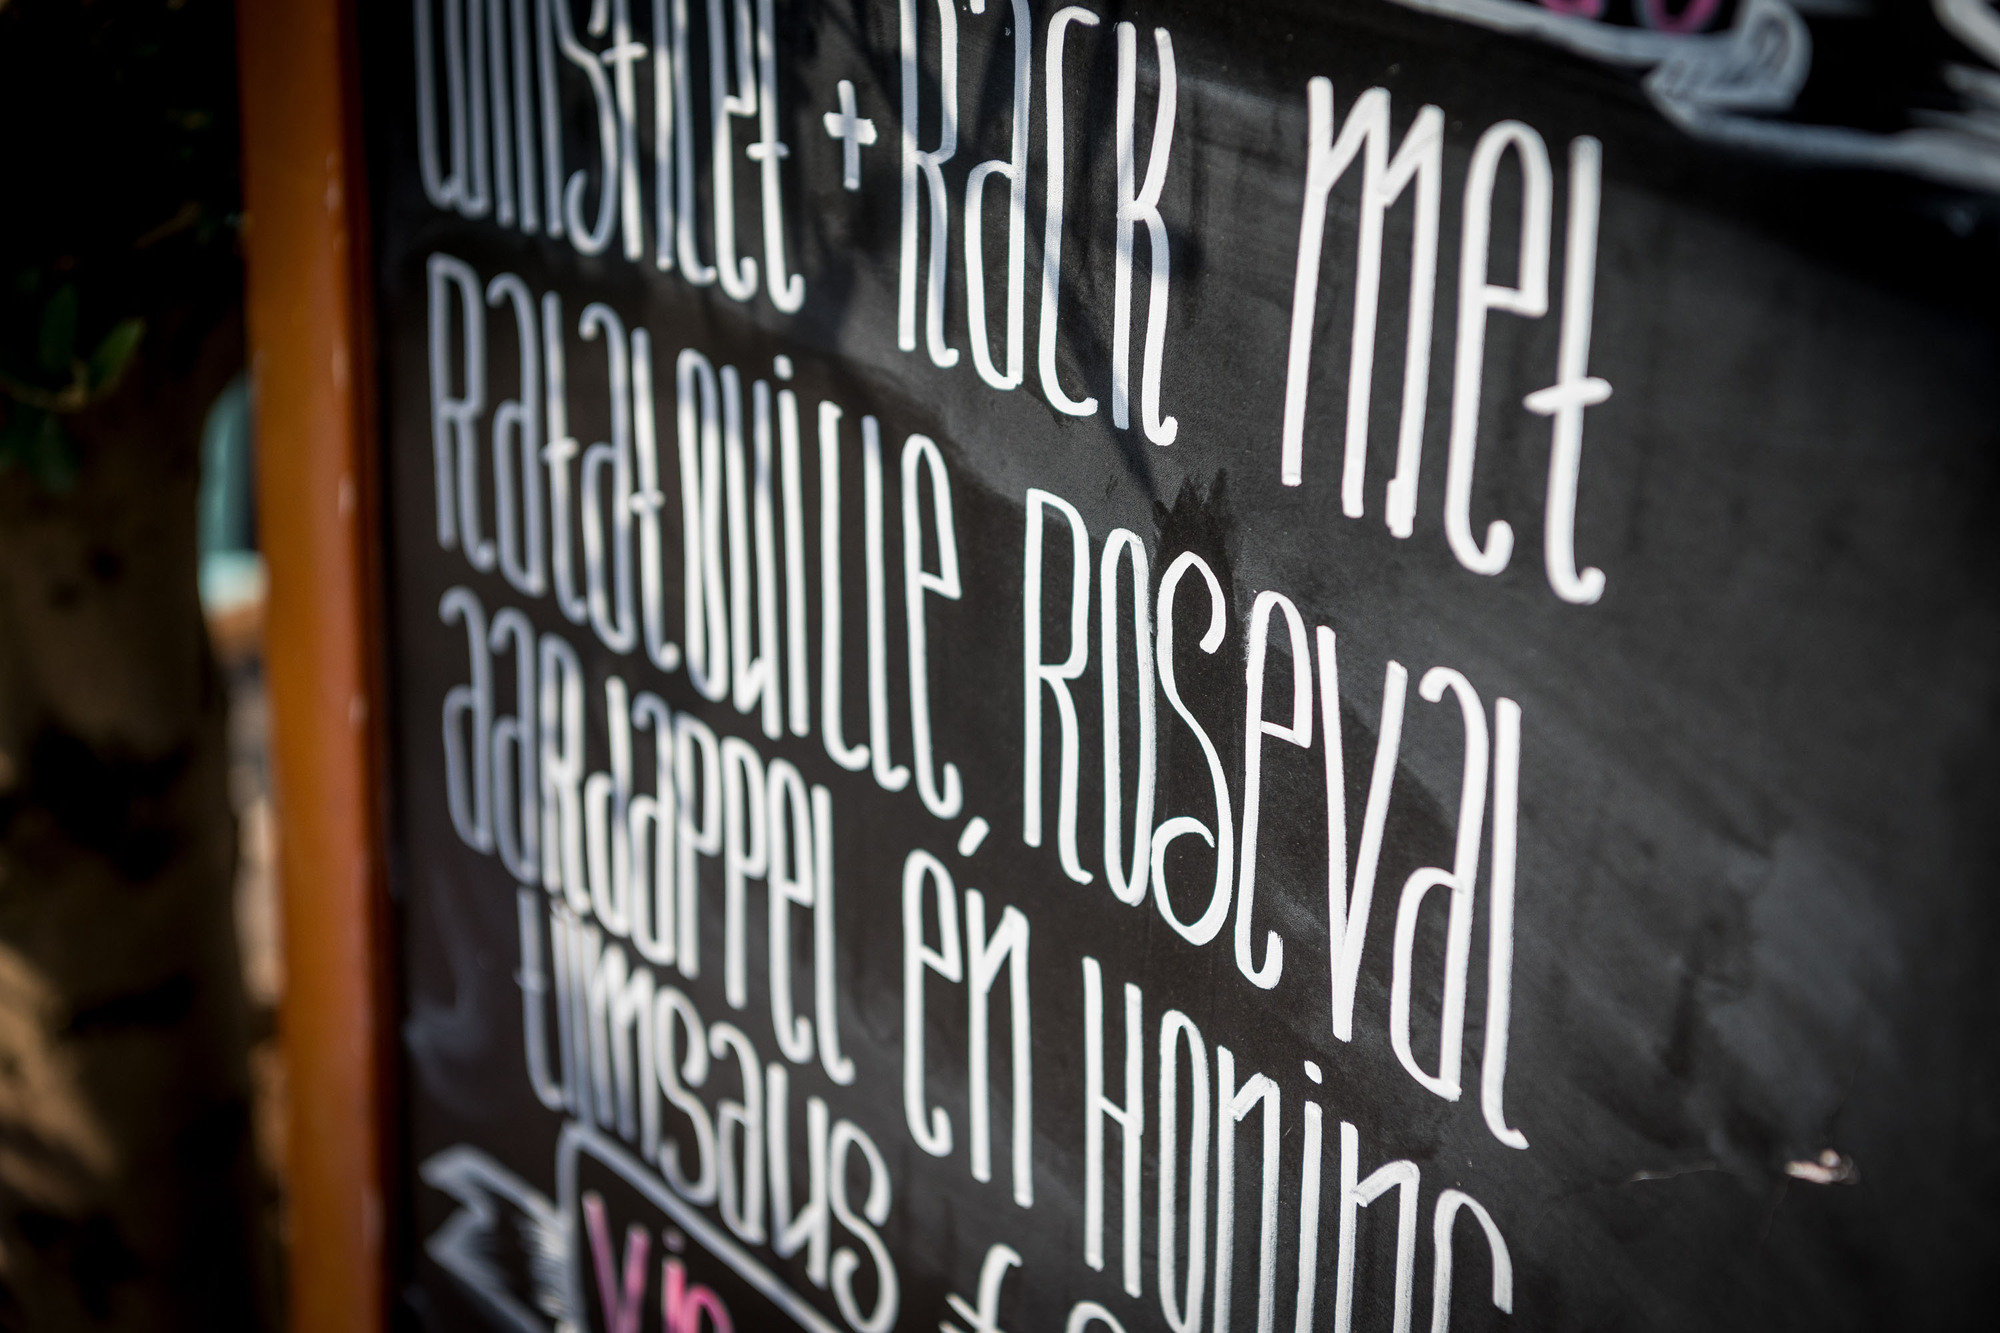 + Rack met
Ratatouille, Roseval
aardappel én Honing
tijmsaus